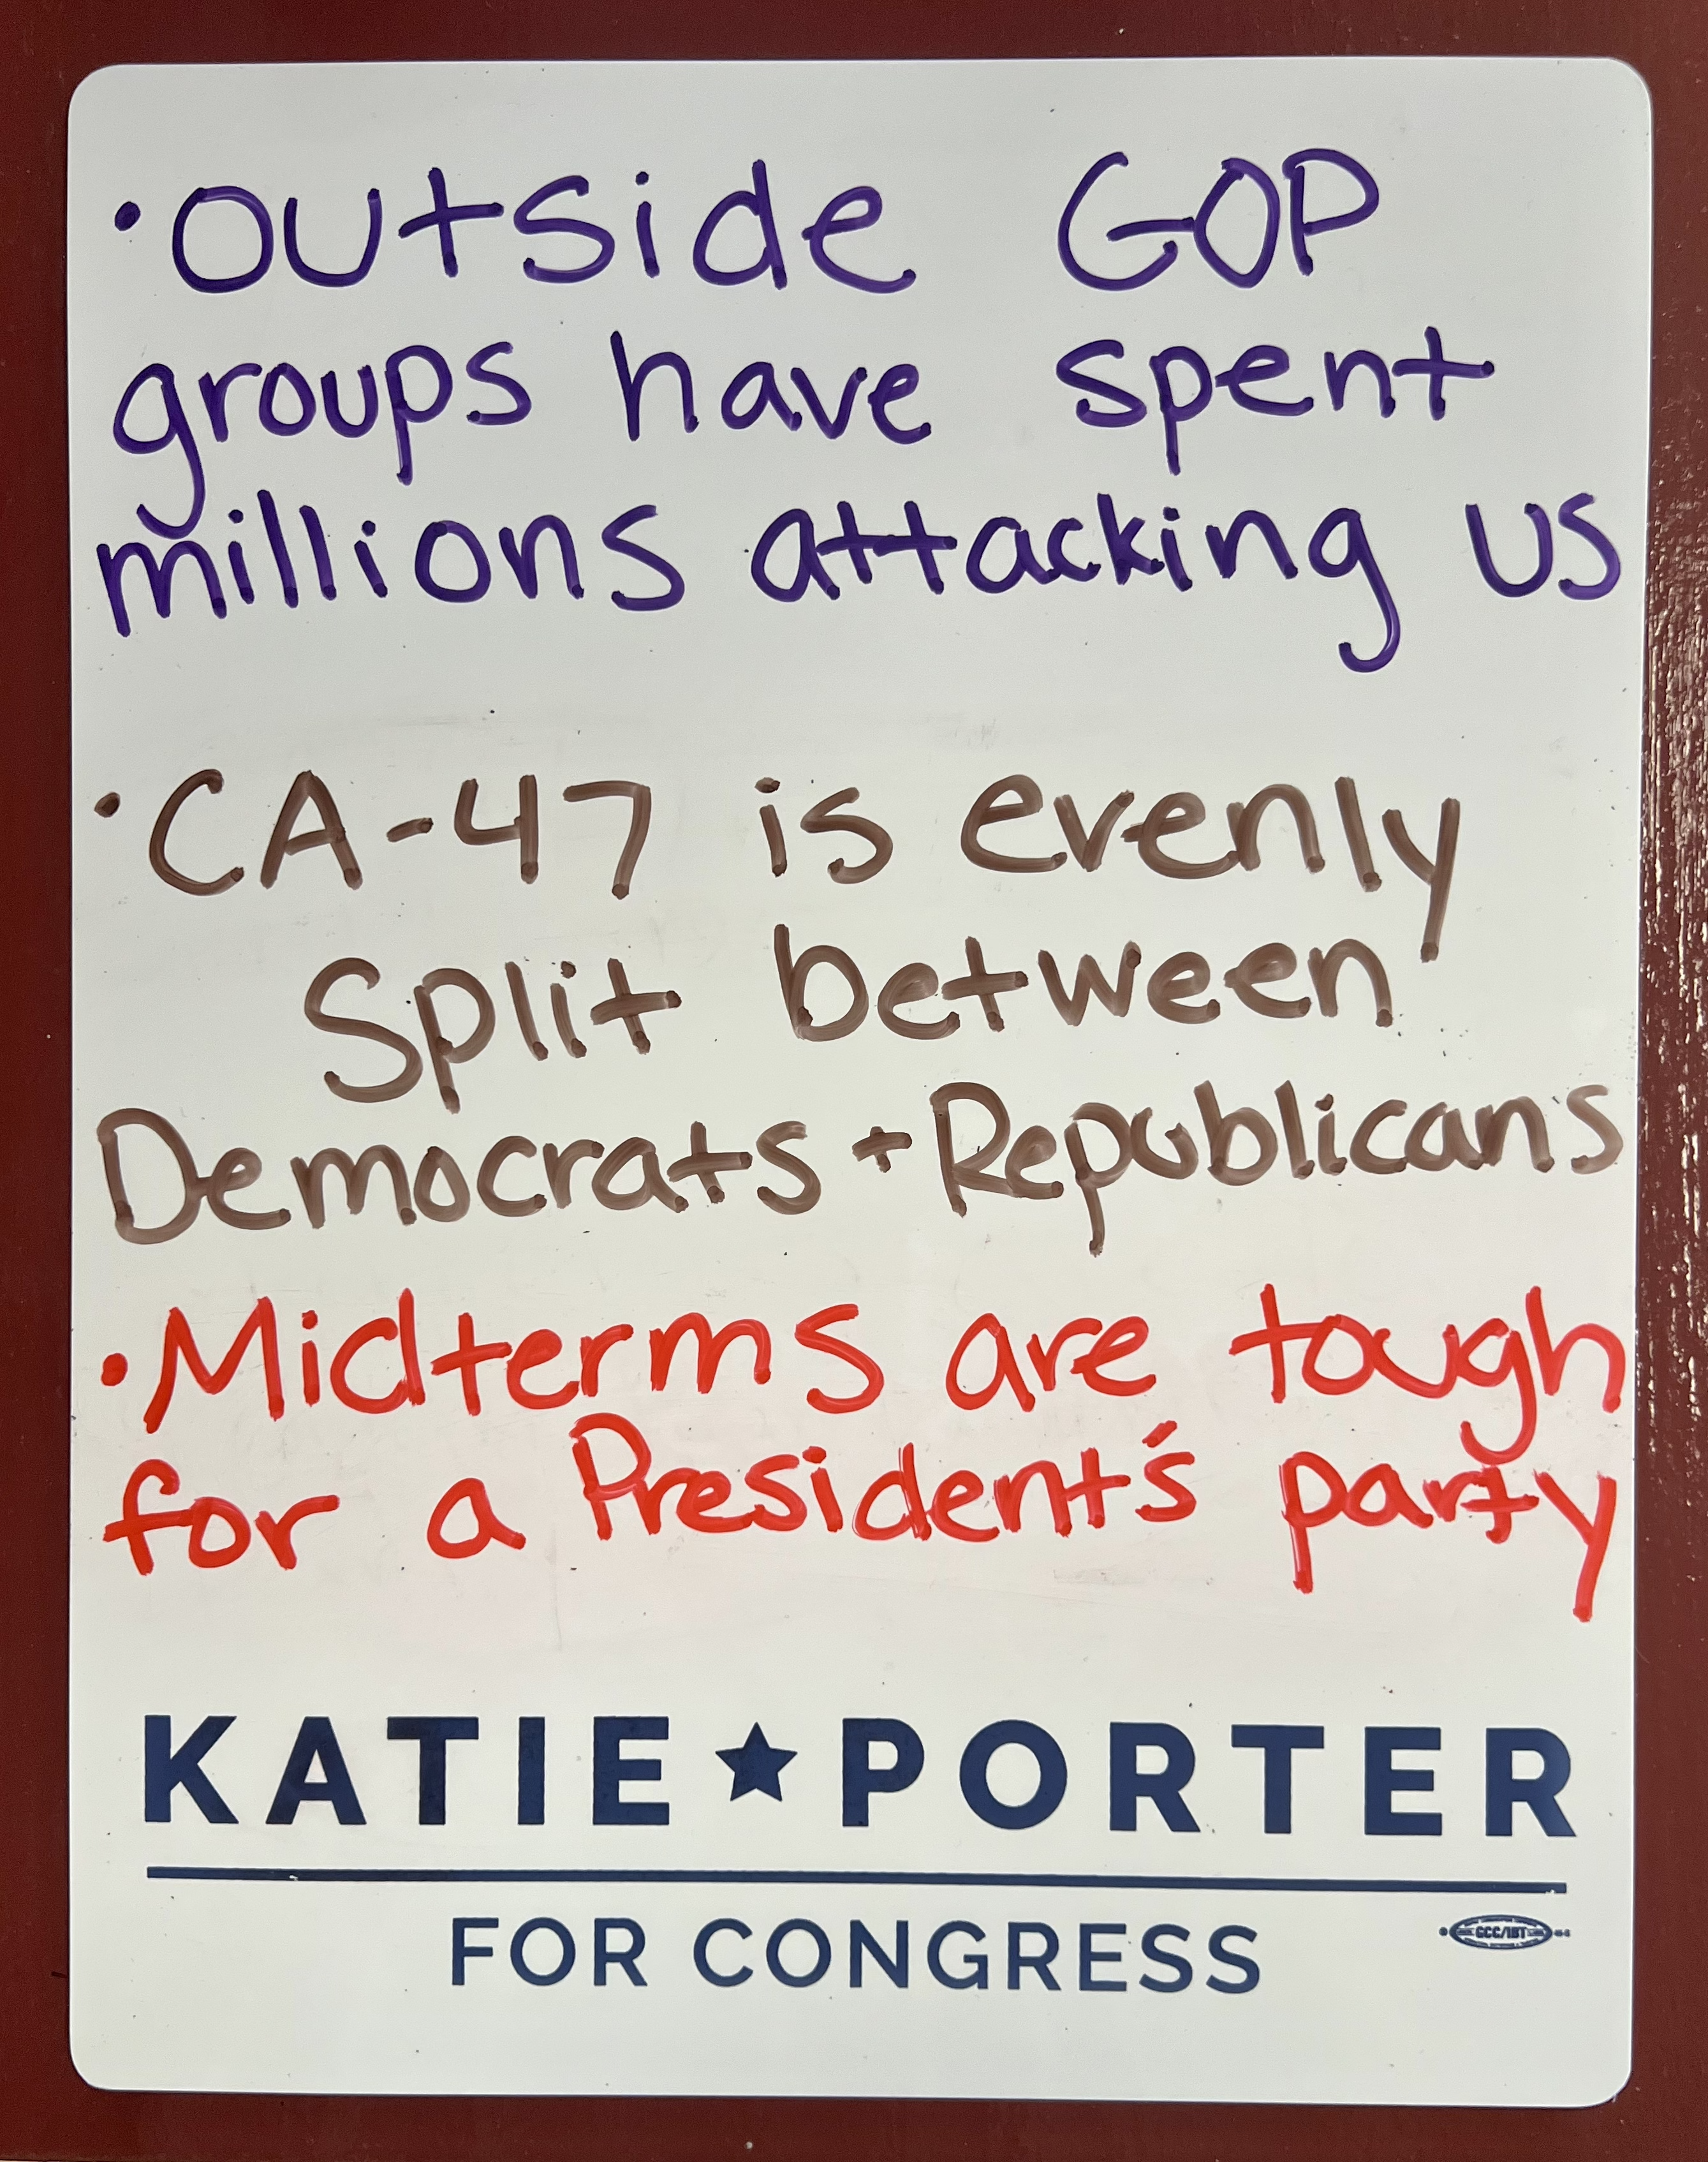 • Outside GOP
groups have spent
millions attacking us
• CA-47 is evenly
Split between
Democrats + Republicans
• Midterms are tough
for a President's party
KATIE ★ PORTER
FOR CONGRESS
GCC/IBT